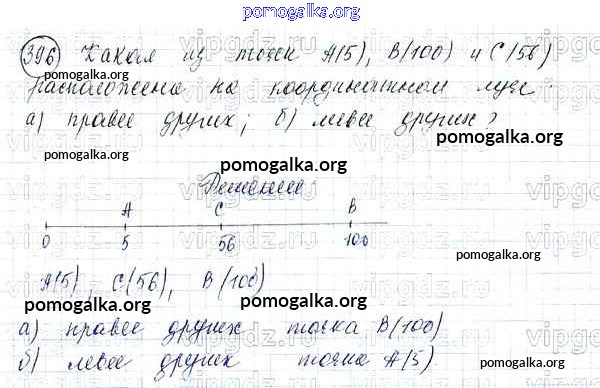 pomogalka.org
396) Какая из точек A(5), B(100) и C(56)
pomogalka.org pomogalka.org
расположена на координатном луче
а) правее других; б) левее других?
pomogalka.org
pomogalka.org
pomogalka.org
Решение:
A C B
0 5 56 100
pomogalka.org
A(5), C(56), B(100)
pomogalka.org pomogalka.org
а) правее других точка B(100)
б) левее других точка A(5).
pomogalka.org
pomogalka.org